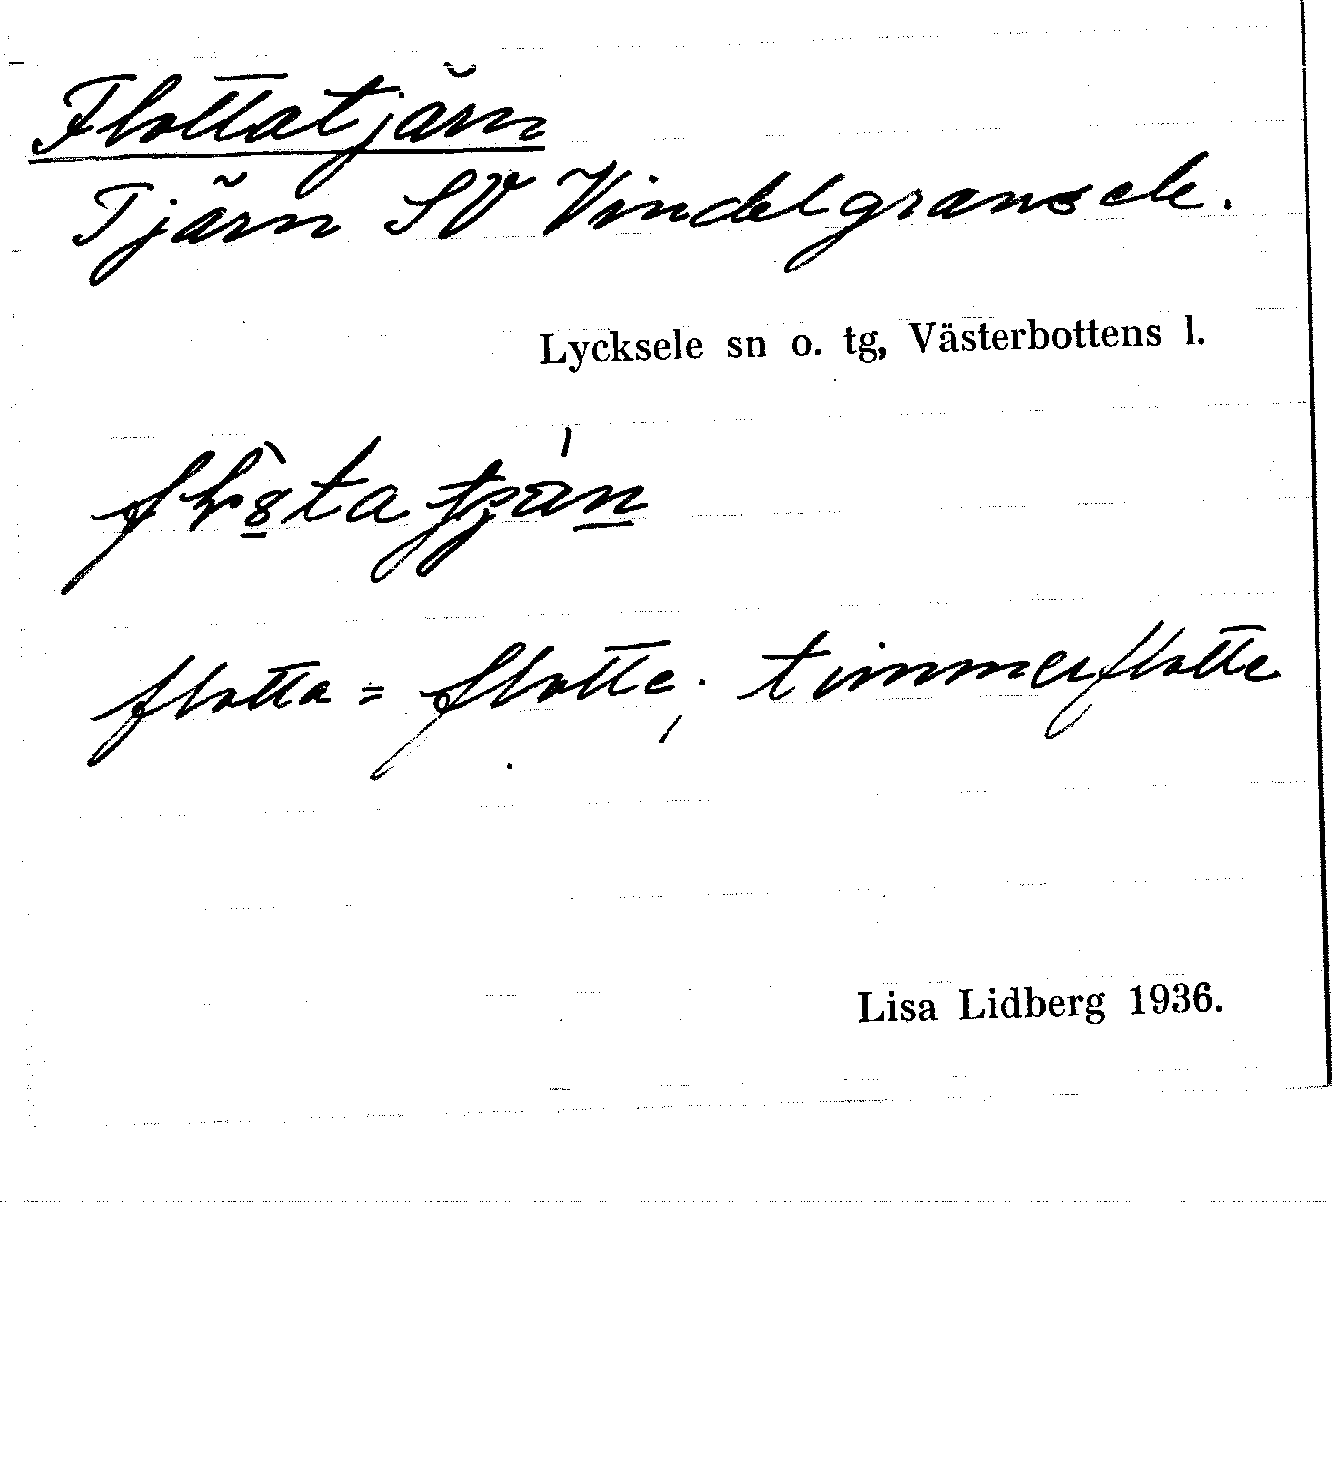 Flottatjärn
Tjärn SV Vindelgransele.
Lycksele sn o. tg, Västerbottens l.
flotta = flotte, timmerflotte
Lisa Lidberg 1936.